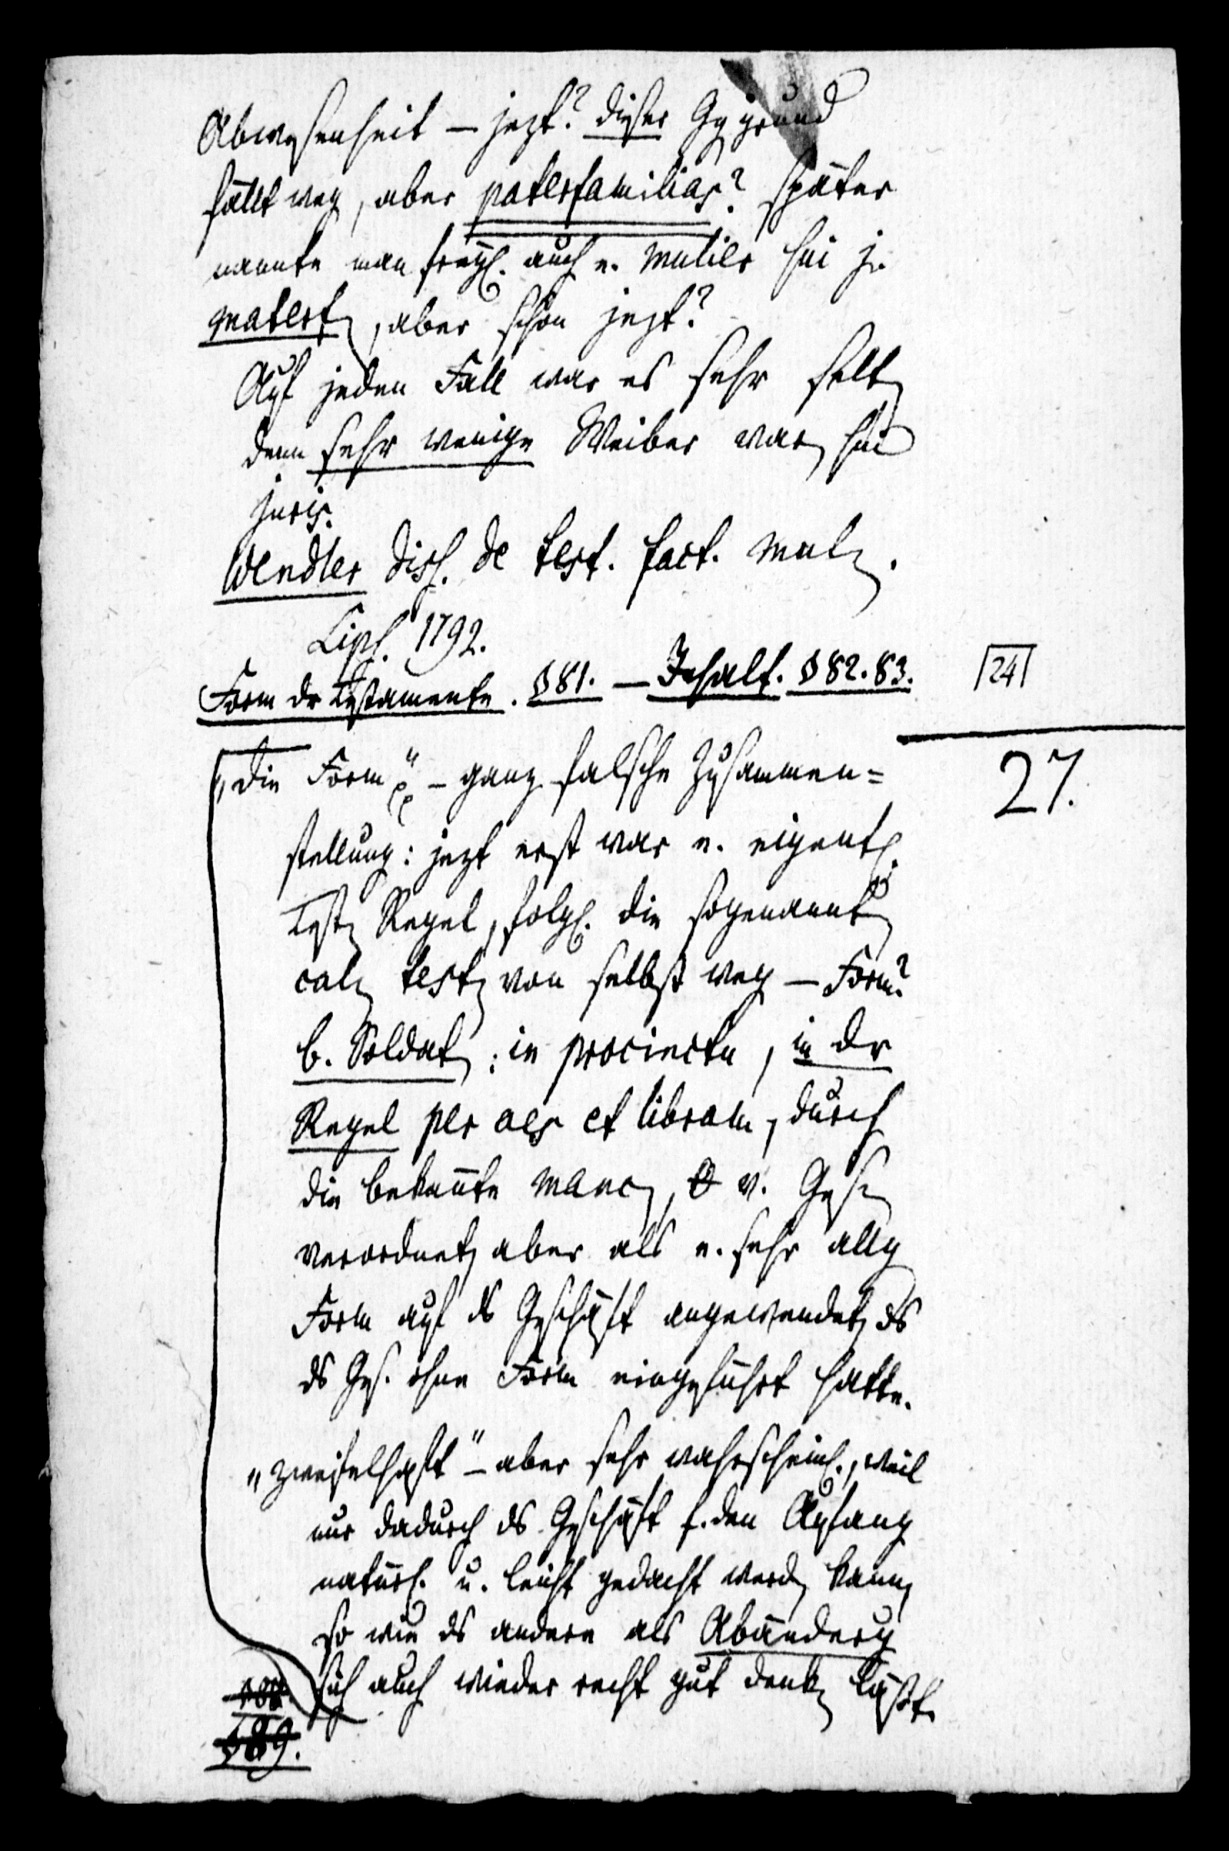 Abwesenheit – jezt? dieser Ggrund
fällt weg, aber paterfamilias? später
nannte man freyl. auch e. mulier sui j.
materf, aber schon jezt?
Auf jeden Fall war es sehr selt
denn sehr wenige Weiber war sui
juris.
Wendler diss. de test. fact. mul.
Lips. 1792.
Form dr Testamente. §81. – Inhalt. §82.83. 24
27.
„die Form" – ganz falsche Zusammen=
stellung: jezt erst war e. eigentl.
Test Regel, folgl. die sogenannt
cal test von selbst weg – Form?
b. Soldat: in procinctu, in dr
Regel per aes et libram, durch
die bekannte manc, v. Ges
verordnet aber als e. sehr allg
Form auf ds Geschäft angewendet ds
ds Ges. ohne Form eingeführt hatte.
„zweifelhaft" – aber sehr wahrscheinl., weil
nur dadurch ds Geschäft f. den Anfang
natürl. u. leicht gedacht werd kann
so wie ds andere als Abänderg
sich auch wieder recht gut denk läßt.
§89.